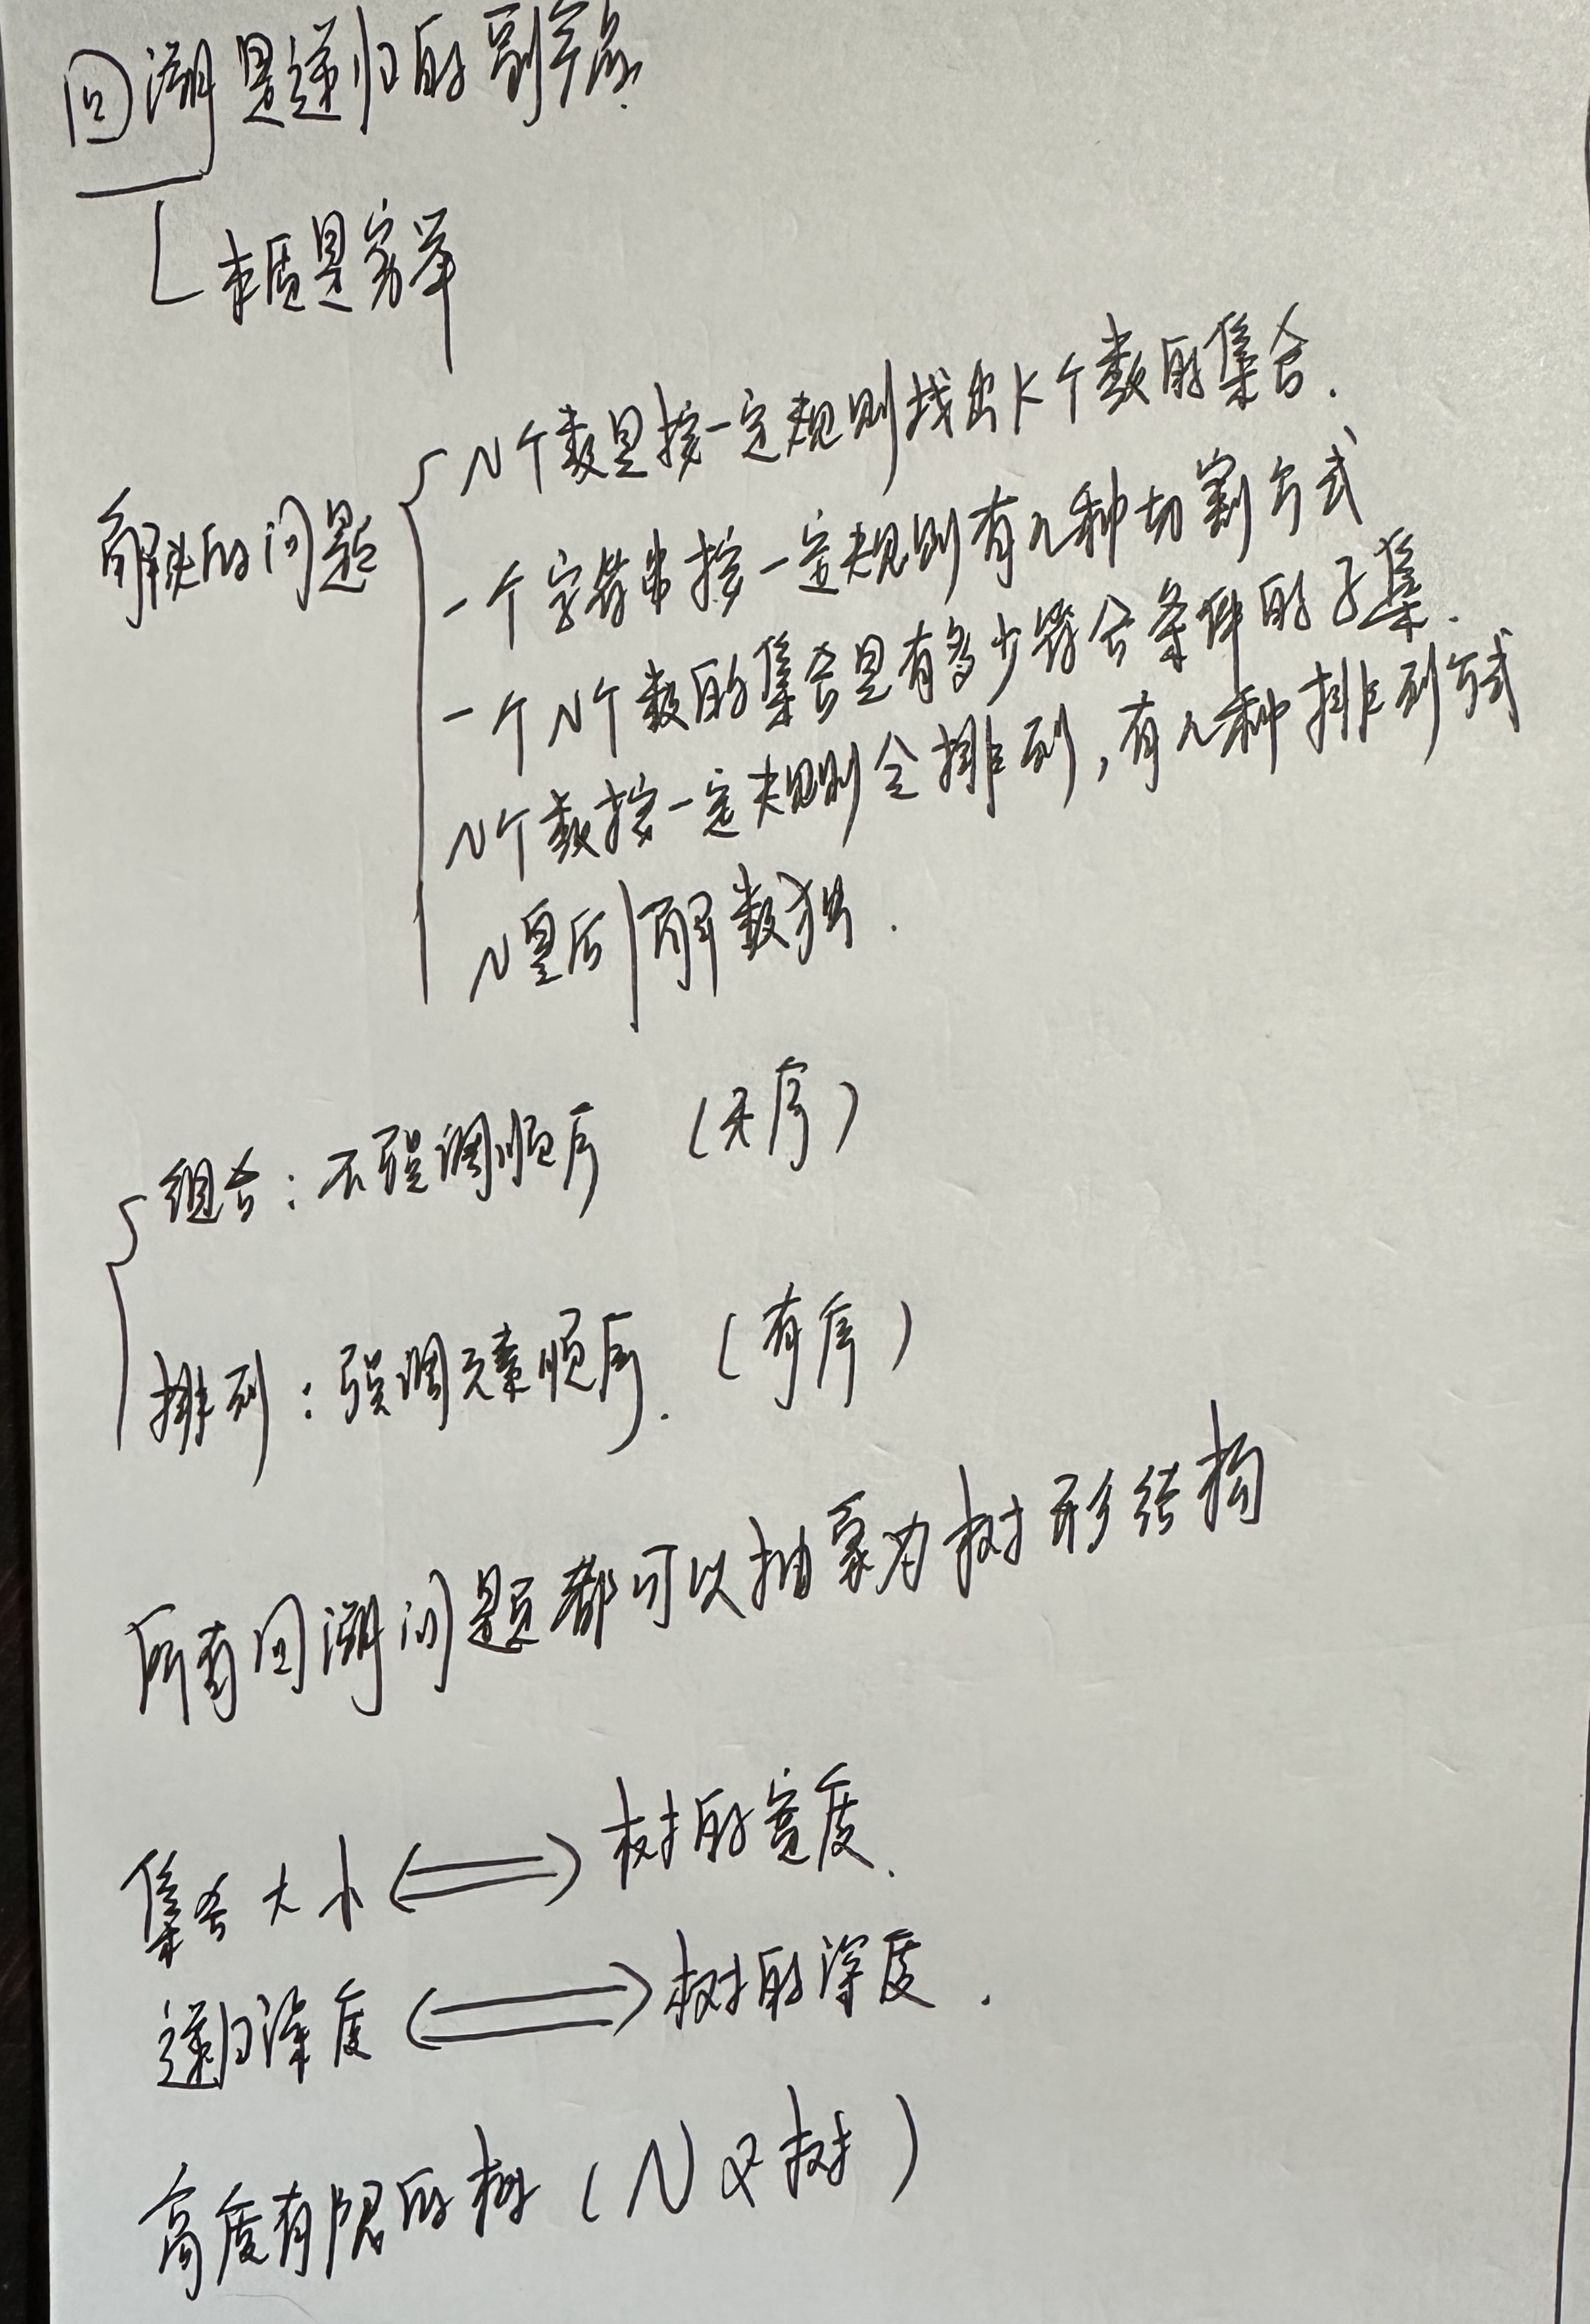 回溯是递归的副产品.
本质是穷举
N个数里按一定规则找出K个数的集合.
解决的问题
一个字符串按一定规则有几种切割方式
一个N个数的集合里有多少符合条件的子集.
N个数按一定规则全排列,有几种排列方式
N皇后|解数独.
组合:不强调顺序 (无序)
排列:强调元素顺序. (有序)
所有回溯问题都可以抽象为树形结构
集合大小 <=> 树的宽度.
递归深度 <=> 树的深度.
高度有限的树 (N叉树)